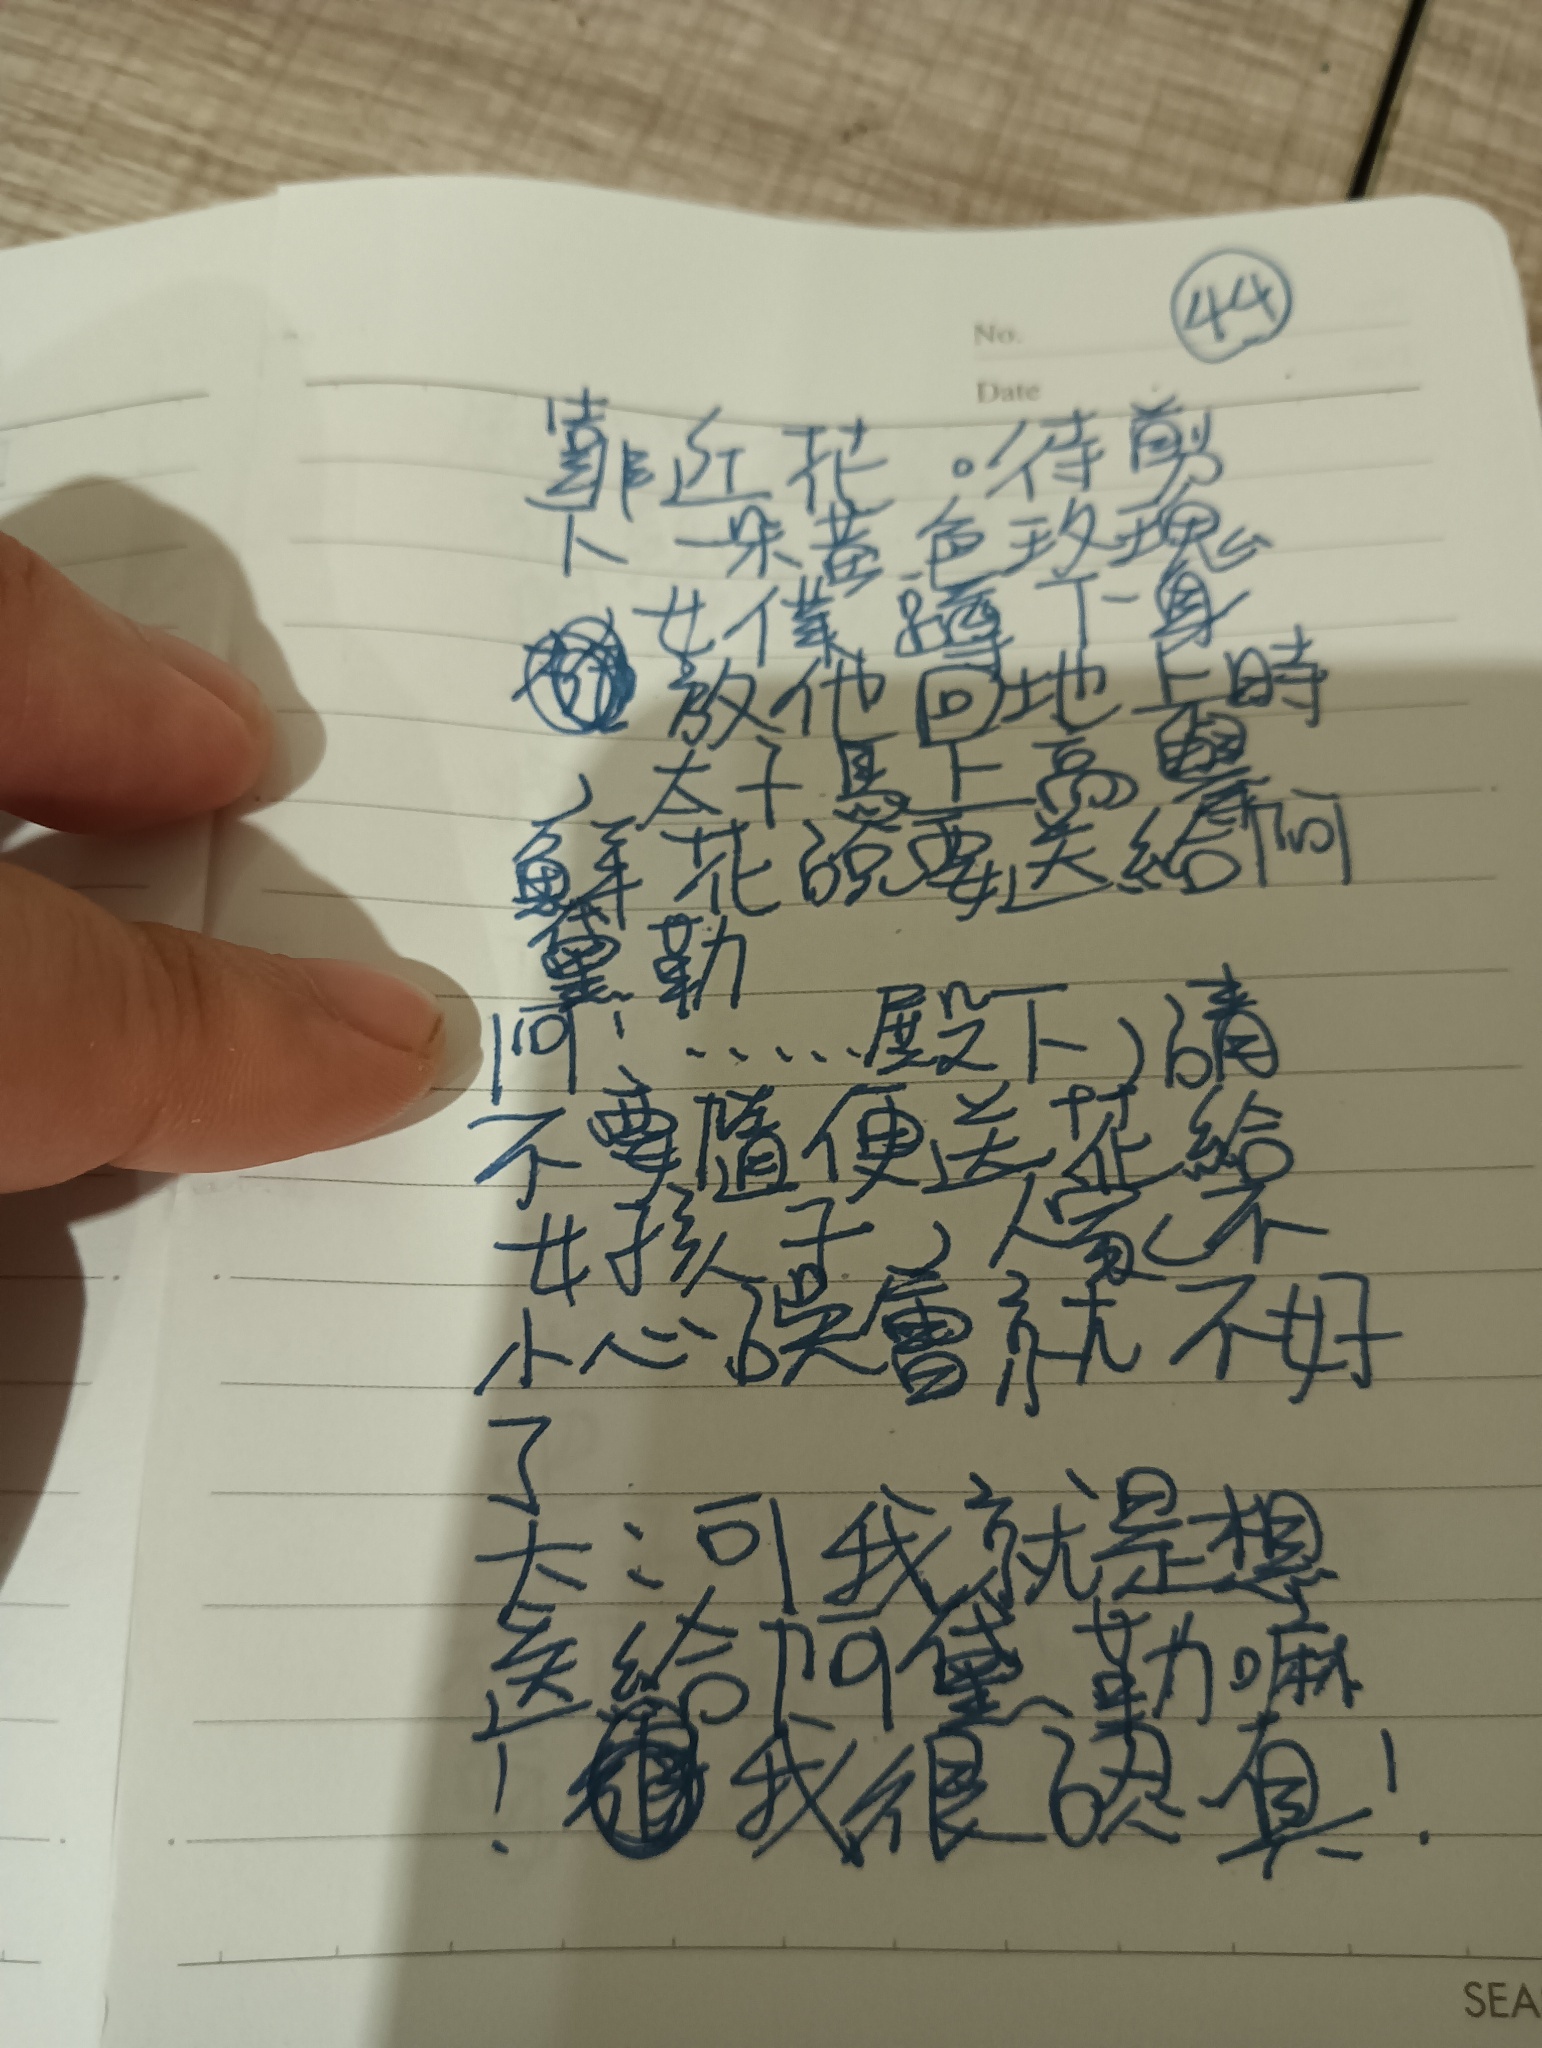 44
No.
Date
靠近花。待剪
下一朵黃色玫瑰
女僕蹲下身
放他回地上時
，太子馬上高舉
鮮花說要送給阿
黛勒
阿：……殿下，請
不要隨便送花給
女孩子，人家不
小心誤會就不好
了
太：可我就是想
送給阿黛勒嘛
！我很認真！
SEA